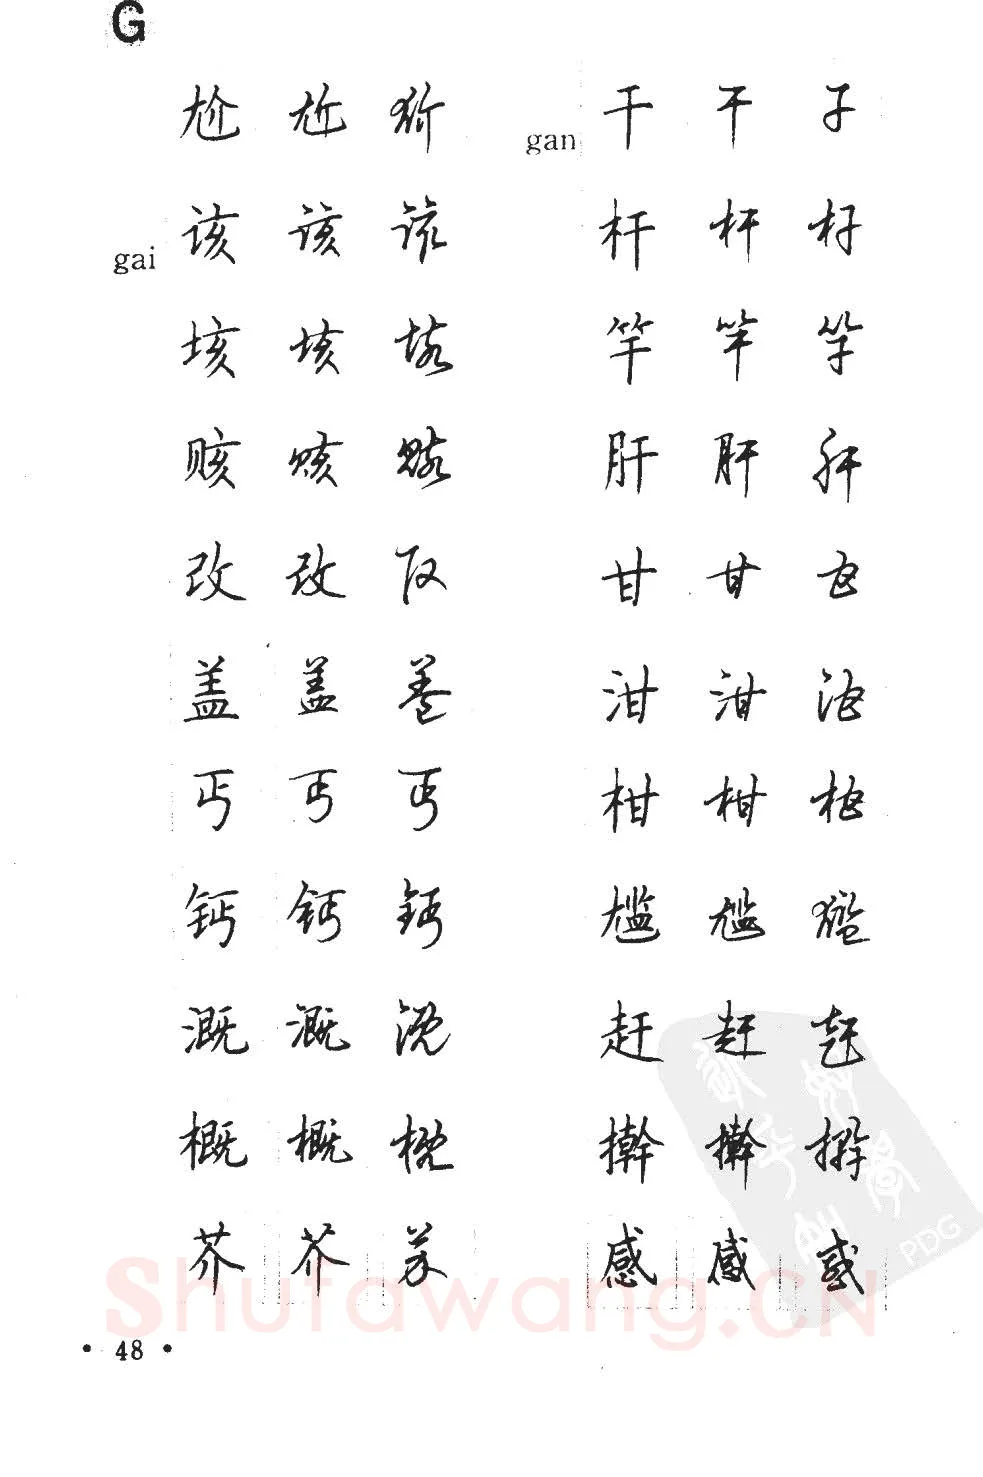 G
尬 尬 尬
gai 该 该 该
垓 垓 垓
赅 赅 赅
改 改 改
盖 盖 盖
丐 丐 丐
钙 钙 钙
溉 溉 溉
概 概 概
芥 芥 芥
gan 干 干 干
杆 杆 杆
竿 竿 竿
肝 肝 肝
甘 甘 甘
泔 泔 泔
柑 柑 柑
尴 尴 尴
赶 赶 赶
擀 擀 擀
感 感 感
• 48 •
Shufawang.CN
PDG